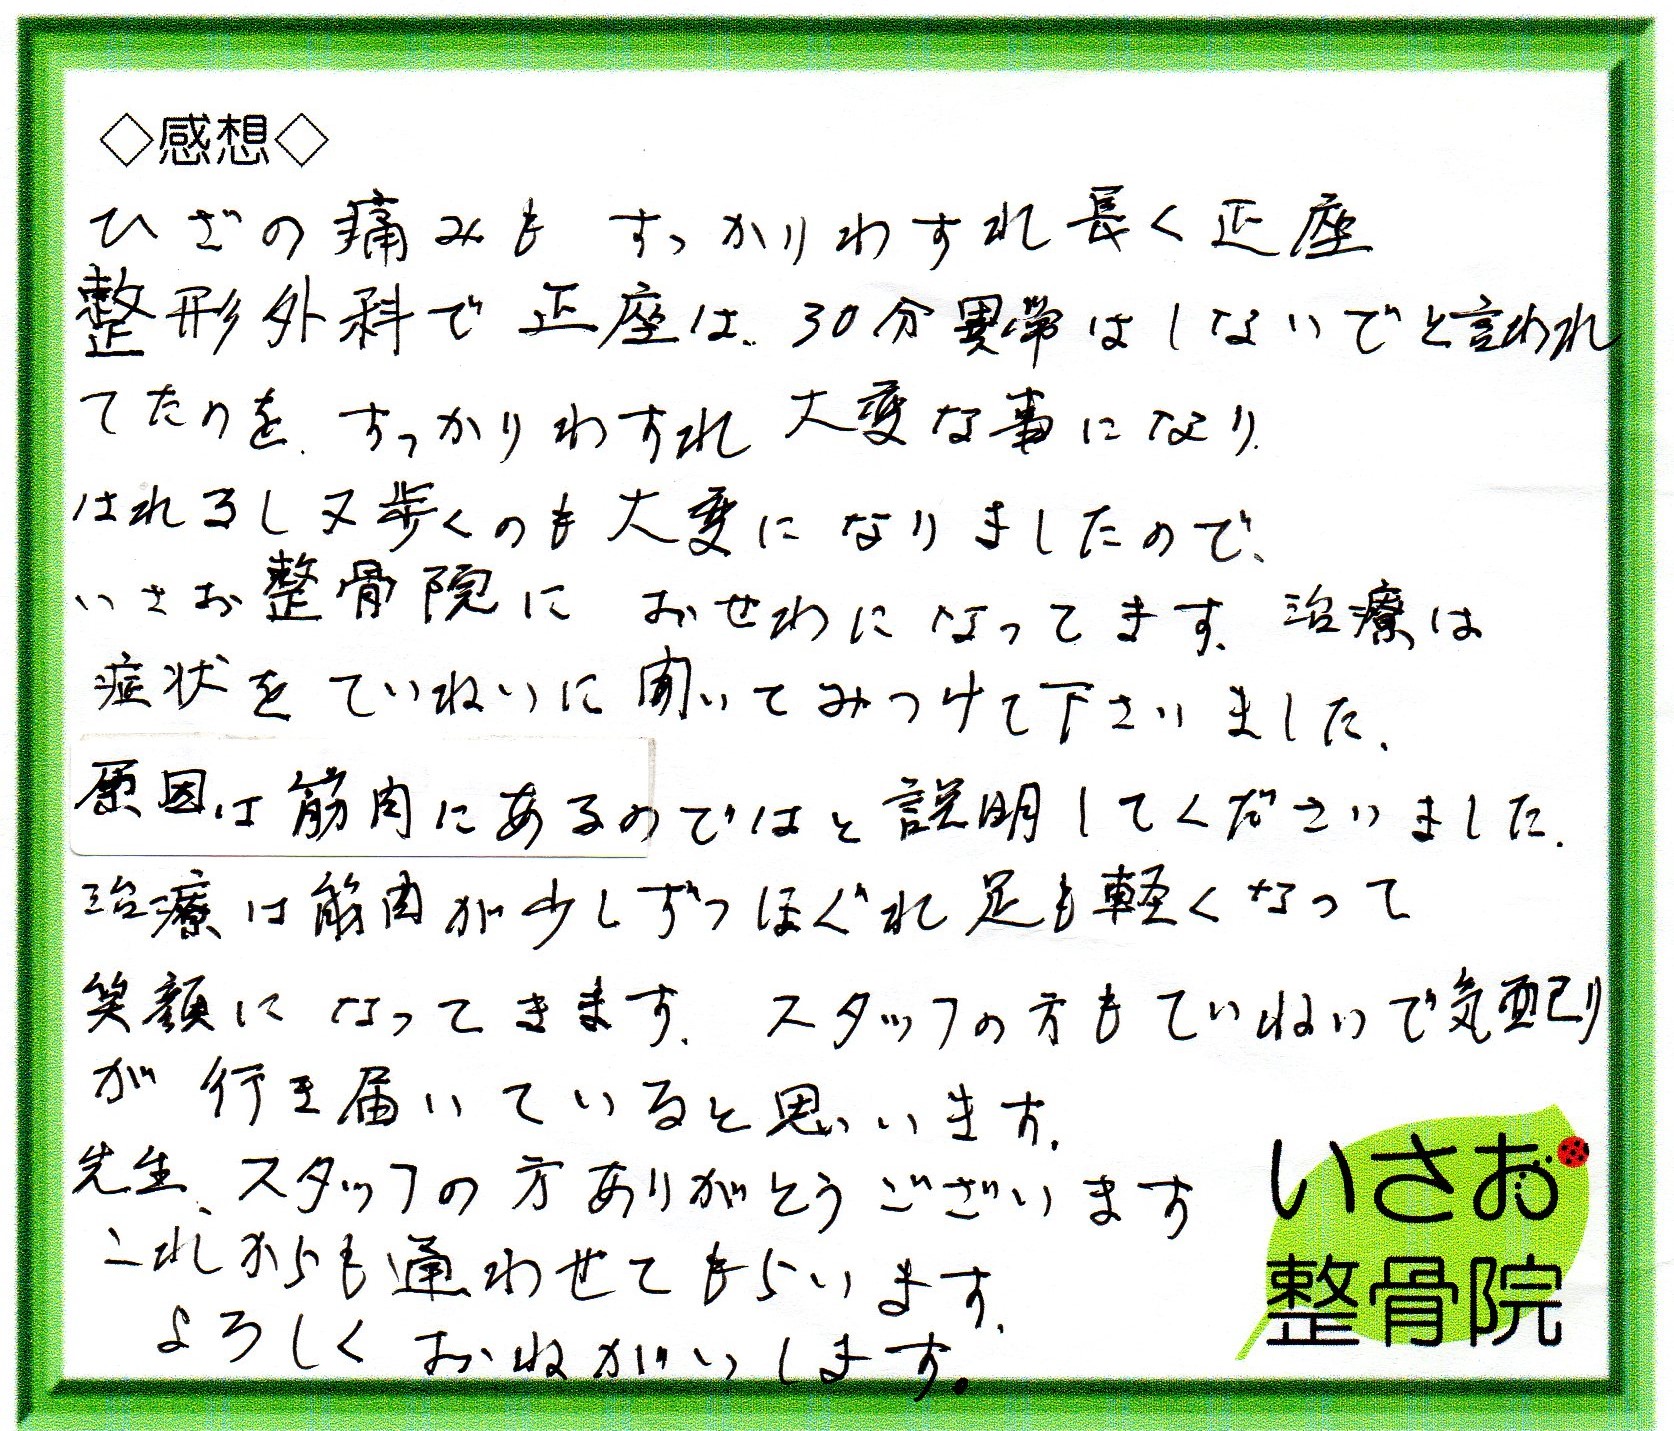 ◇感想◇
ひざの痛みも すっかりわすれ長く正座
整形外科で 正座は、30分異常はしないでと言われ
てたのを、すっかりわすれ 大変な事になり
はれるし又歩くのも大変になりましたので、
いさお整骨院に おせわになってます、治療は
症状を ていねいに 聞いてみつけて下さいました、
原因は筋肉にあるのではと説明してくださいました.
治療は筋肉が少しずつほぐれ足も軽くなって
笑顔になってきます. スタッフの方もていねいで気配り
が 行き届いていると思います.
先生、スタッフの方ありがとうございます
これからも通わせてもらいます.
よろしく おねがいします。
いさお
整骨院